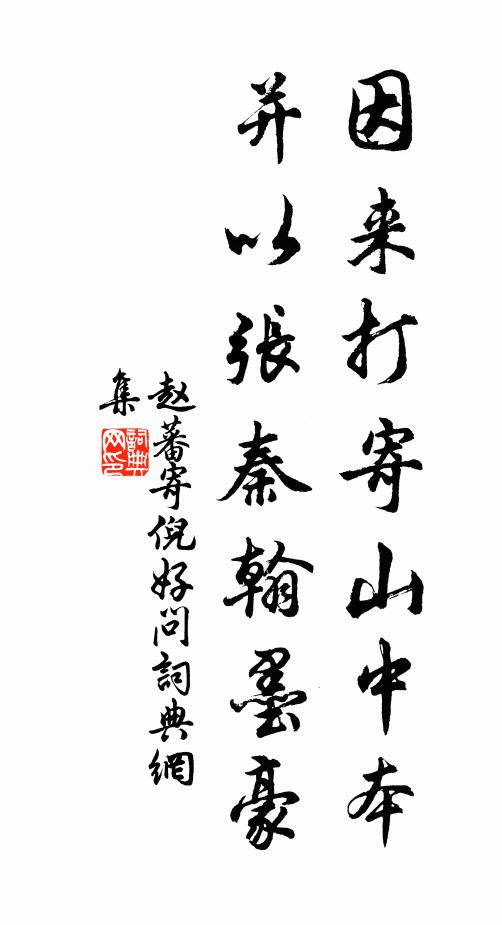 因来打寄山中本
并以張秦翰墨豪
赵蕃寄倪好问詞典網
集
詞典网印